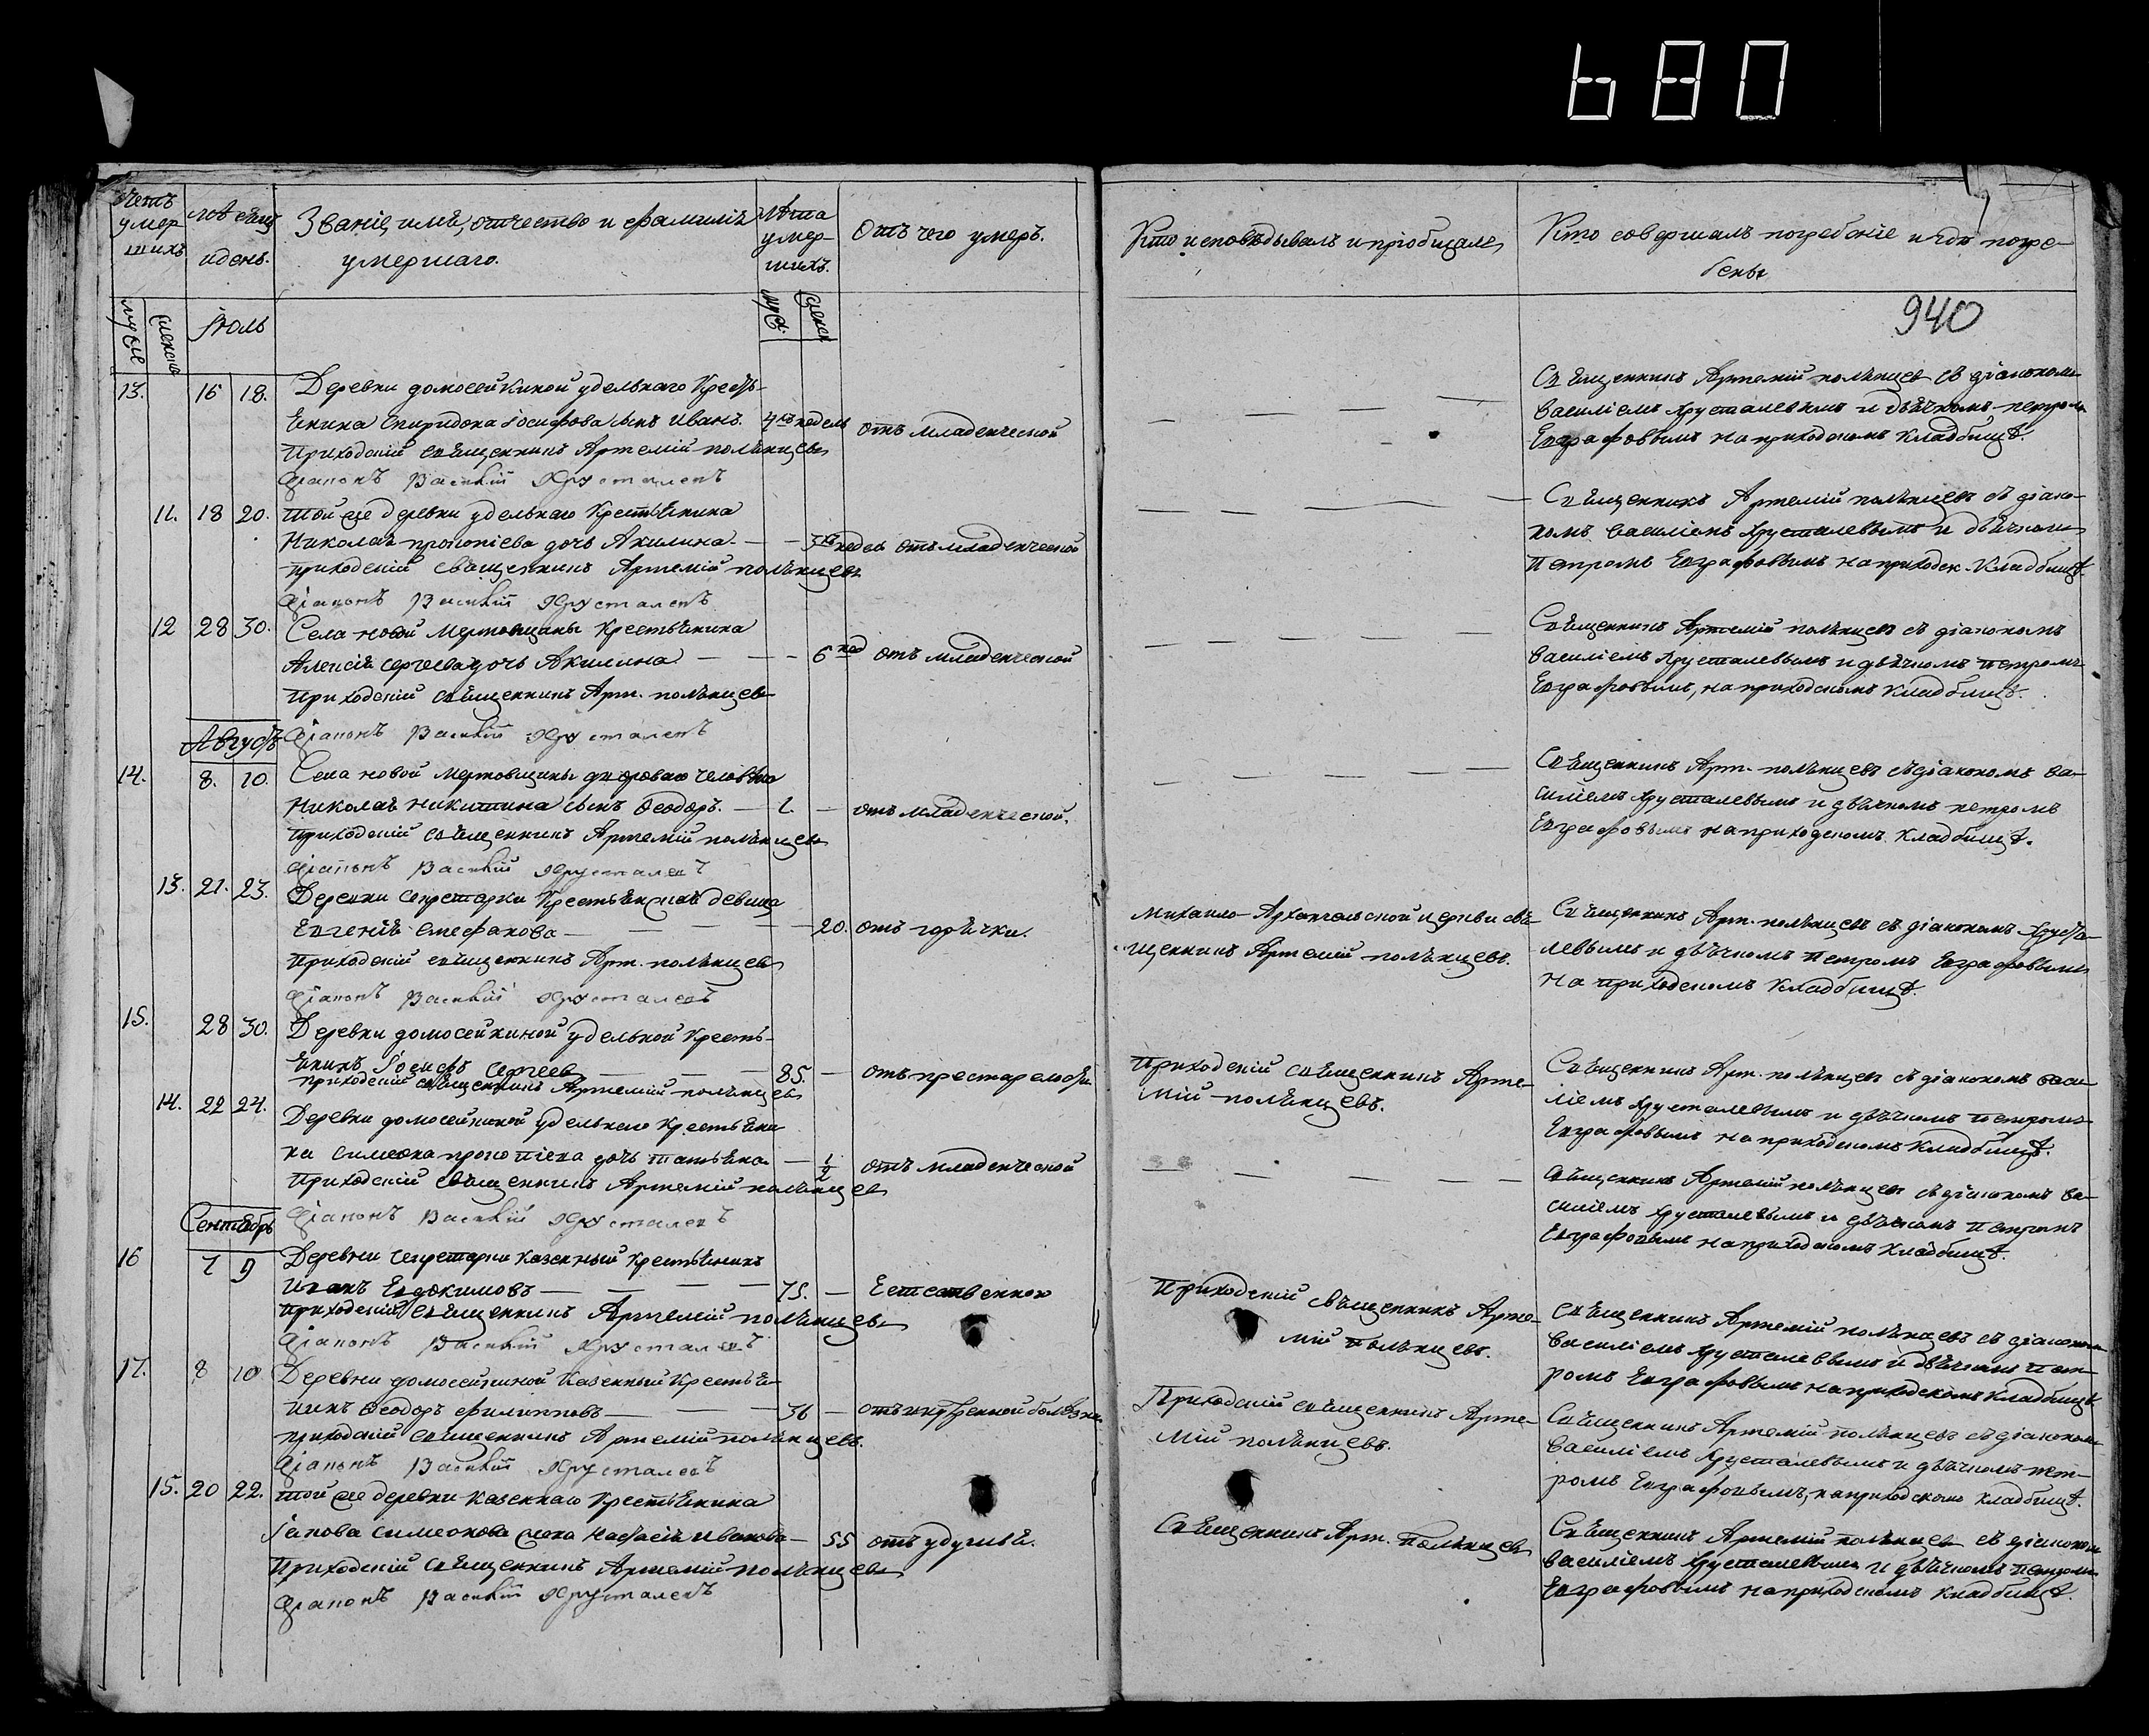 680
Счетъ умер шихъ
мѣсяцъ и день.
Званіе, имя, отчество и фамилія
умершаго.
Лѣта умер- шихъ.
Отъ чего умеръ.
Кто исповѣдывалъ и пріобщалъ
Кто совершалъ погребеніе и гдѣ погре-
бены
муж.
женск
Іюль
муж.
женск
940
13. 16 18. Деревни домосейкиной удельнаго Кресть-
янина Спиридона Іосифова сынъ Иванъ. 4 недель отъ младенческой
приходскій священникъ Артемій полянцевъ
Діаконъ Василій Хрусталевъ
Священникъ Артемій полянцев съ діакономъ
василіемъ Хрусталевымъ и дьячкомъ петромъ
Евграфовымъ на приходскомъ кладбищѣ.
11. 18 20. той же деревни удельнаго Крестьянина
Николая прокопіева дочь Акилина. 3 недель отъ младенческой
приходскій священникъ Артемій полянцевъ
Діаконъ Василій Хрусталевъ
Священникъ Артемій полянцевъ съ діако-
номъ василіемъ Хрусталевымъ и дьячкомъ
Петромъ Евграфовымъ на приходск. кладбищѣ.
12 28 30. Села новой Мертовщины Крестьянина
Алексія сергеева дочь Акилина. 6 нед отъ младенческой
Приходскій священникъ Арт. полянцев
Діаконъ Василій Хрусталевъ
Священникъ Артемій полянцевъ съ діакономъ
василіемъ Хрусталевымъ и дьячкомъ петромъ
Евграфовымъ, на приходскомъ кладбищѣ.
Августъ
14. 8. 10. Села новой мертовщины дворового человѣка
Николая никитина сынъ Ѳеодоръ. 1. отъ младенческой.
Приходскій священникъ Артемій полянцевъ
Діаконъ Василій Хрусталевъ
Священникъ Арт. полянцевъ съ діакономъ ва-
силіемъ Хрусталевымъ и дьячкомъ петромъ
Евграфовымъ на приходскомъ кладбищѣ.
13. 21. 23. Деревни секретарки Крестьянская девица
Евгенія стефанова 20. отъ горячки.
Приходскій священникъ Арт. полянцев
Діаконъ Василій Хрусталевъ
Михаило-Архангельской церкви свя-
щенникъ Артемій полянцевъ.
Священникъ Арт. полянцевъ съ діакономъ Хруста-
левымъ и дьячкомъ Петромъ Евграфовымъ
на приходскомъ кладбищѣ.
15. 28 30. Деревни домосейкиной удельной Кресть-
янинъ Іосифъ сергеев 85. отъ престарелости.
приходскій священникъ Артемій полянцевъ
Приходскій священникъ Арте-
мій полянцевъ.
Священникъ Арт. полянцев съ діакономъ васи-
ліемъ Хрусталевымъ и дьячкомъ петромъ
Евграфовымъ на приходскомъ кладбищѣ.
14. 22 24. Деревни домосейкиной удельнаго Крестьяни
на симеона прокопіева дочь татьяна. 1/2 отъ младенческой
Приходскій священникъ Артемій полянцев
Діаконъ Василій Хрусталевъ
Священникъ Артемій полянцев съ діакономъ ва-
силіемъ Хрусталевымъ и дьячкомъ Петромъ
Евграфовымъ на приходскомъ кладбищѣ.
Сентябрь
16 7 9 Деревни секретарки казенный крестьянинъ
Иванъ Евдокимовъ 75. Естественною
приходскій священникъ Артемій полянцевъ
Діаконъ Василій Хрусталевъ
Приходскій священникъ Арте-
мій полянцевъ.
священникъ Артемій полянцевъ съ діакономъ
василіемъ Хрусталевымъ и дьячкомъ пет-
ромъ Евграфовымъ на приходскомъ кладбищѣ.
17. 8 10 Деревни домосейкиной Казенный Крестья-
нинъ Ѳеодоръ филипповъ 36 отъ внутренной болезни
приходскій священникъ Артемій полянцевъ.
Діаконъ Василій Хрусталевъ
Приходскій священникъ Арте-
мій полянцевъ.
Священникъ Артемій полянцевъ съ діакономъ
василіемъ Хрусталевымъ и дьячкомъ пет-
ромъ Евграфовымъ, на приходскомъ кладбищѣ.
15. 20 22. той же деревни казеннаго Крестьянина
Іакова симеонова жена настасія иванова 55 отъ удушья.
Приходскій священникъ Артемій полянцевъ
Діаконъ Василій Хрусталевъ
Священникъ Арт. Полянцевъ
Священникъ Артемій полянцевъ съ діакономъ
василіемъ Хрусталевымъ и дьячкомъ петромъ
Евграфовымъ на приходскомъ кладбищѣ.